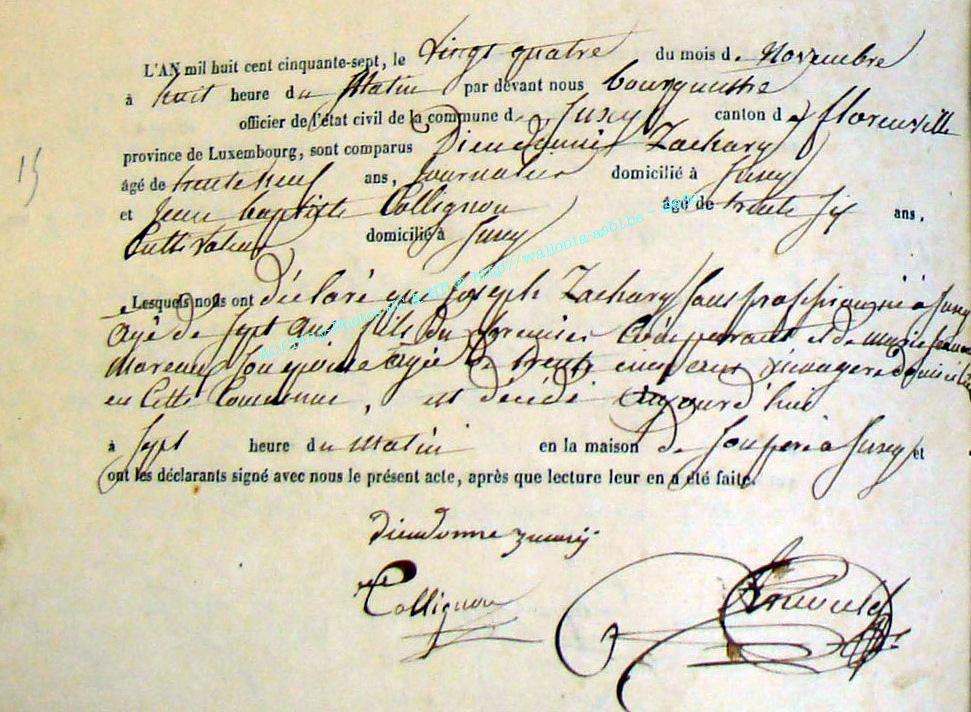 L'AN mil huit cent cinquante-sept, le vingt quatre du mois de Novembre
à huit heure du Matin par devant nous bourguestre
officier de l'état civil de la commune de Suxy canton de florenville
province de Luxembourg, sont comparus Dieudonné Zachary
âgé de trente neuf ans, Journalier domicilié à Suxy
et Jean baptiste Collignon âgé de trente six ans,
Cultivateur domicilié à Suxy
Lesquels nous ont déclaré que Joseph Zachary sans profession né à Suxy
agé de sept ans fils du premier Comparant et de Marie
Moreau son épouse agée de trente cinq ans ménagere domiciliée
en cette Commune, est décédé aujourd'hui
à sept heure du Matin en la maison de son père à Suxy et
ont les déclarants signé avec nous le présent acte, après que lecture leur en a été faite.
15
dieudonne
Collignon
http//wallonia-asbl.be